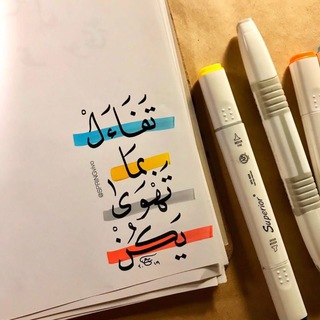 تَفَاءَلْ
بِمَا
تَهْوَى
يَكُنْ
@SFRNGHAO
Superior